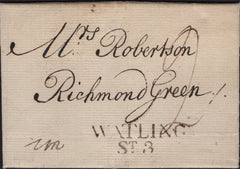 Mrs Robertson
Richmond Green.
WATLING
ST. 3